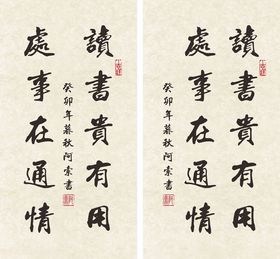 讀書貴有用
處事在通情
癸卯年暮秋阿索書
讀書貴有用
處事在通情
癸卯年暮秋阿索書